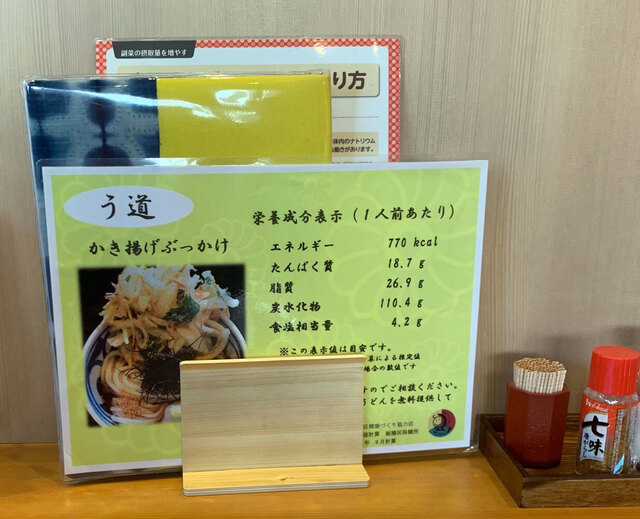 副菜の摂取量を増やす
り方
体内のナトリウム
働きがあります。
う道
かき揚げぶっかけ
栄養成分表示(1人前あたり)
エネルギー 770 kcal
たんぱく質 18.7 g
脂質 26.9 g
炭水化物 110.4 g
食塩相当量 4.2 g
※この表示値は目安です。
による推定値
場合の数値です
のでご相談ください。
うどんを無料提供して
区健康づくり協力店
板橋区保健所
年 9月計算
七味